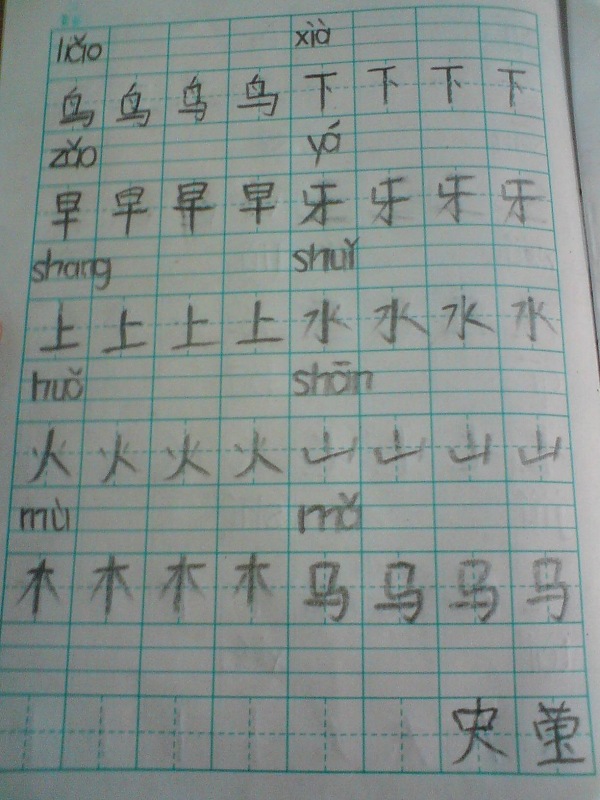 liǎo xià
鸟 鸟 鸟 鸟 下 下 下 下
zǎo yá
早 早 早 早 牙 牙 牙 牙
shang shuǐ
上 上 上 上 水 水 水 水
huǒ shān
火 火 火 火 山 山 山 山
mù mǎ
木 木 木 木 马 马 马 马
史 莹